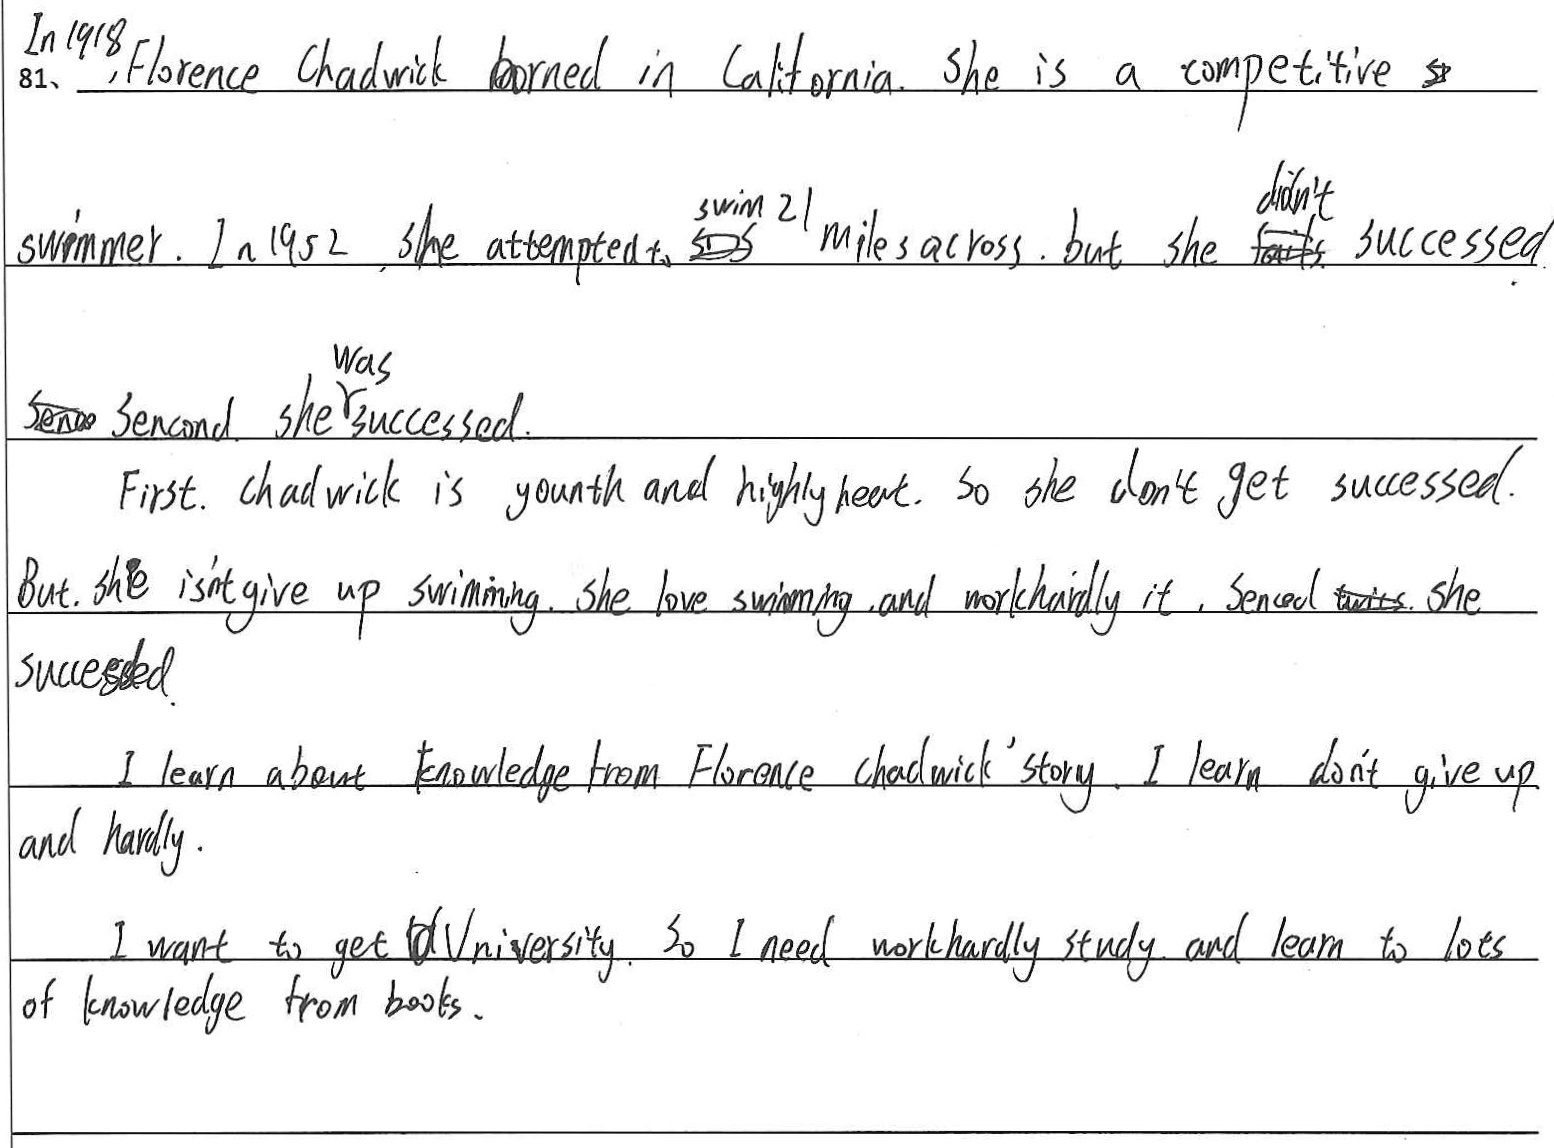 In 1918
81、, Florence Chadwick borned in California. She is a competitive
swimmer. In 1952, she attempted to swim 21 miles across. but she didn't successed.
Sencond she was successed.
First. Chadwick is younth and highly heat. So she don't get successed.
But. she isn't give up swimming. She love swimming. and workhardly it. Senced she
successed.
I learn about knowledge from Florence Chadwick' story. I learn don't give up
and hardly.
I want to get University. So I need workhardly study. and learn to lots
of knowledge from books.